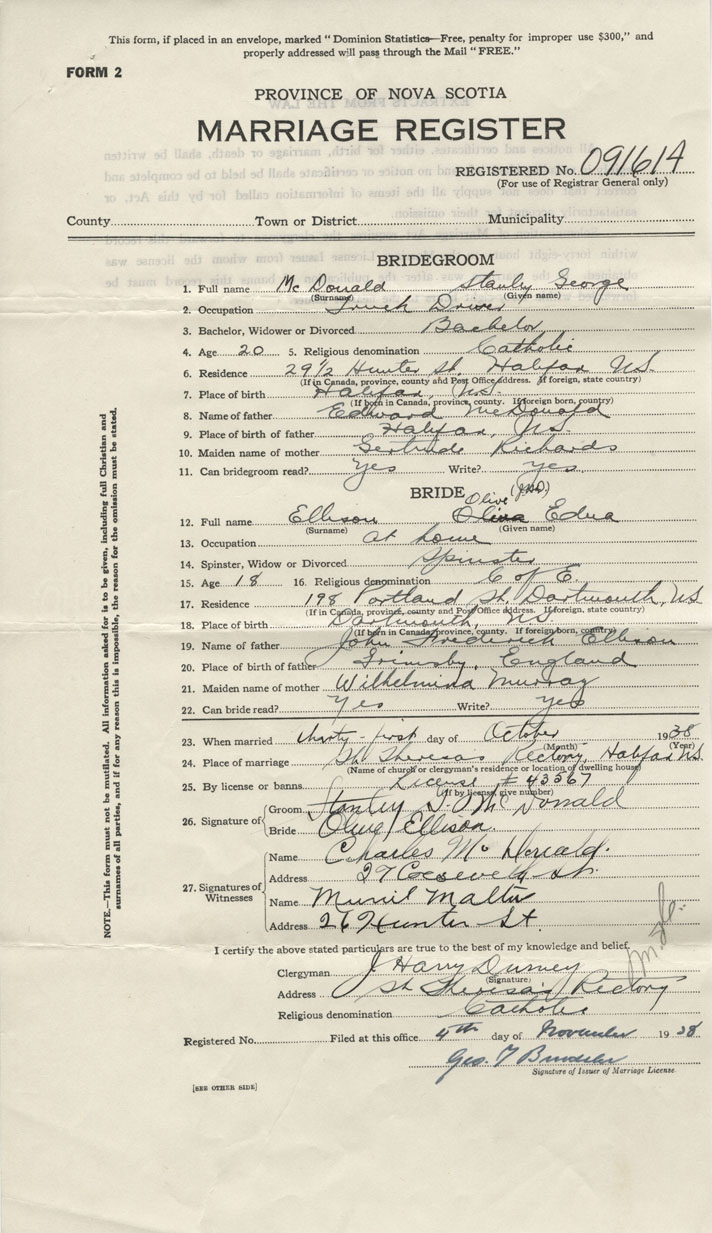 This form, if placed in an envelope, marked "Dominion Statistics—Free, penalty for improper use $300," and
properly addressed will pass through the Mail "FREE."
FORM 2
PROVINCE OF NOVA SCOTIA
MARRIAGE REGISTER
REGISTERED No. 091614
(For use of Registrar General only)
County Town or District Municipality
BRIDEGROOM
1. Full name McDonald Stanly George
(Surname) (Given name)
2. Occupation Truck Driver
3. Bachelor, Widower or Divorced Bachelor
4. Age 20 5. Religious denomination Catholic
6. Residence 29½ Hunter St. Halifax N.S.
(If in Canada, province, county and Post Office address. If foreign, state country)
7. Place of birth Halifax, N.S.
(If born in Canada, province, county. If foreign born, country)
8. Name of father Edward McDonald
9. Place of birth of father Halifax, N.S.
10. Maiden name of mother Gertrude Richards
11. Can bridegroom read? Yes Write? yes
BRIDE Olive
12. Full name Ellison Olivia Edna
(Surname) (Given name)
13. Occupation at home
14. Spinster, Widow or Divorced Spinster
15. Age 18 16. Religious denomination C of E.
17. Residence 198 Portland St. Dartmouth, N.S
(If in Canada, province, county and Post Office address. If foreign, state country)
18. Place of birth Dartmouth, N.S.
(If born in Canada, province, county. If foreign born, country)
19. Name of father John Frederick Ellison
20. Place of birth of father Grimsby, England
21. Maiden name of mother Wilhelmina Murray
22. Can bride read? Yes Write? yes
23. When married thirty-first day of October 1938
(Month) (Year)
24. Place of marriage St. Theresa's Rectory, Halifax N.S.
(Name of church or clergyman's residence or location of dwelling house)
25. By license or banns License # 43567
(If by license, give number)
26. Signature of Groom Stanley G. McDonald
Bride Olive Ellison.
27. Signatures of Witnesses
Name Charles Mc Donald.
Address 29 St.
Name
Address 26 Hunter St.
I certify the above stated particulars are true to the best of my knowledge and belief.
Clergyman J Harry Durney
(Signature)
Address St Theresa's Rectory
Religious denomination Catholic
Registered No. Filed at this office 4th day of November 1938
Geo. T
Signature of Issuer of Marriage License.
[SEE OTHER SIDE]
NOTE.—This form must not be mutilated. All information asked for is to be given, including full Christian and
surnames of all parties, and if for any reason this is impossible, the reason for the omission must be stated.